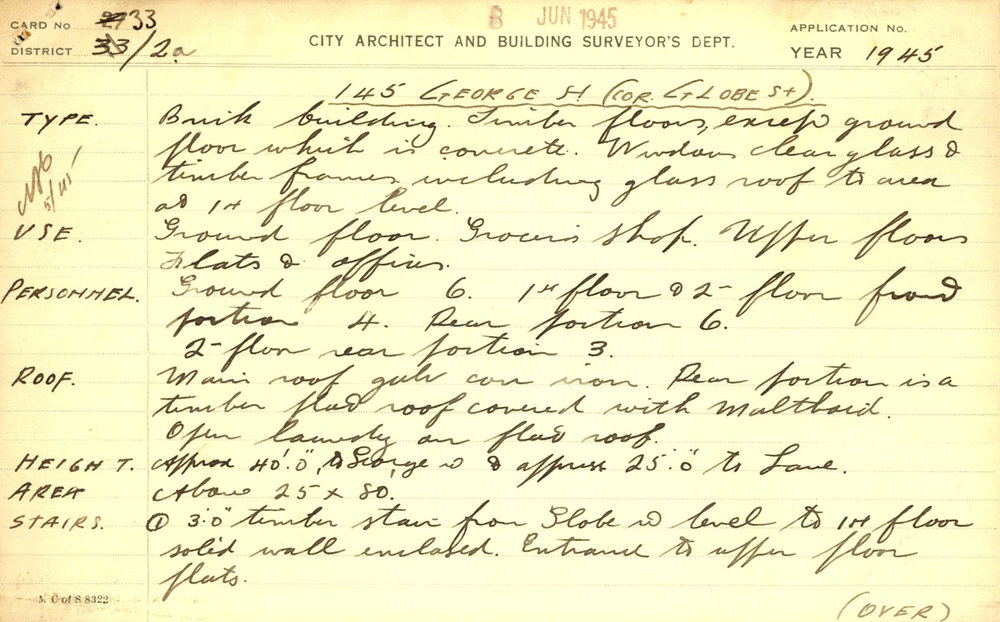 CARD No 27 33
8 JUN 1945
APPLICATION No.
DISTRICT 33/2a
CITY ARCHITECT AND BUILDING SURVEYOR'S DEPT.
YEAR 1945
145 GEORGE St (COR. GLOBE St)
TYPE. Brick building. Timber floors, except ground
floor which is concrete. Windows clear glass &
timber frames including glass roof to area
at 1st floor level.
5/45
USE. Ground floor. Grocers shop. Upper floors
Flats & offices.
PERSONNEL. Ground floor 6. 1st floor & 2nd floor front
portion 4. Rear portion 6.
2nd floor rear portion 3.
ROOF. Main roof galv corr iron. Rear portion is a
timber flat roof covered with Malthoid.
Open laundry on flat roof.
HEIGHT. Approx 40'.0", to George St & approx 25'.0" to Lane.
AREA About 25 x 80.
STAIRS. ① 3'.0" timber stair from Globe St level to 1st floor
solid wall enclosed. Entrance to upper floor
flats.
M. C of S 8322
(OVER)